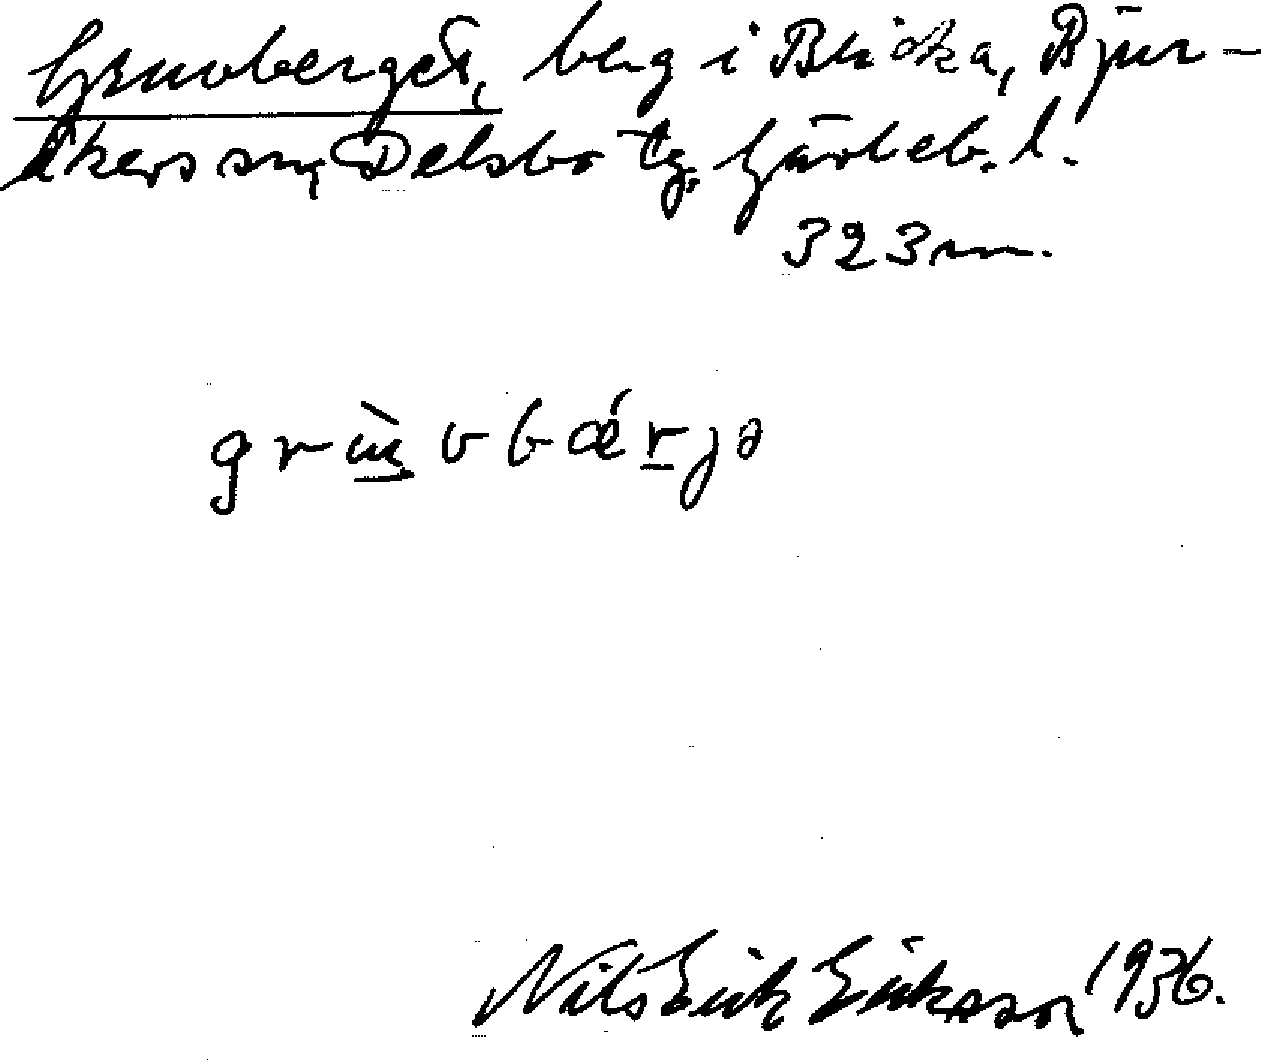 Gruvberget, berg i Bricka, Bjur-
åkers sn, Delsbo tg. Gävleb. l.
323 m.
grùvbǽrjə
Nils Erik Eriksson 1936.